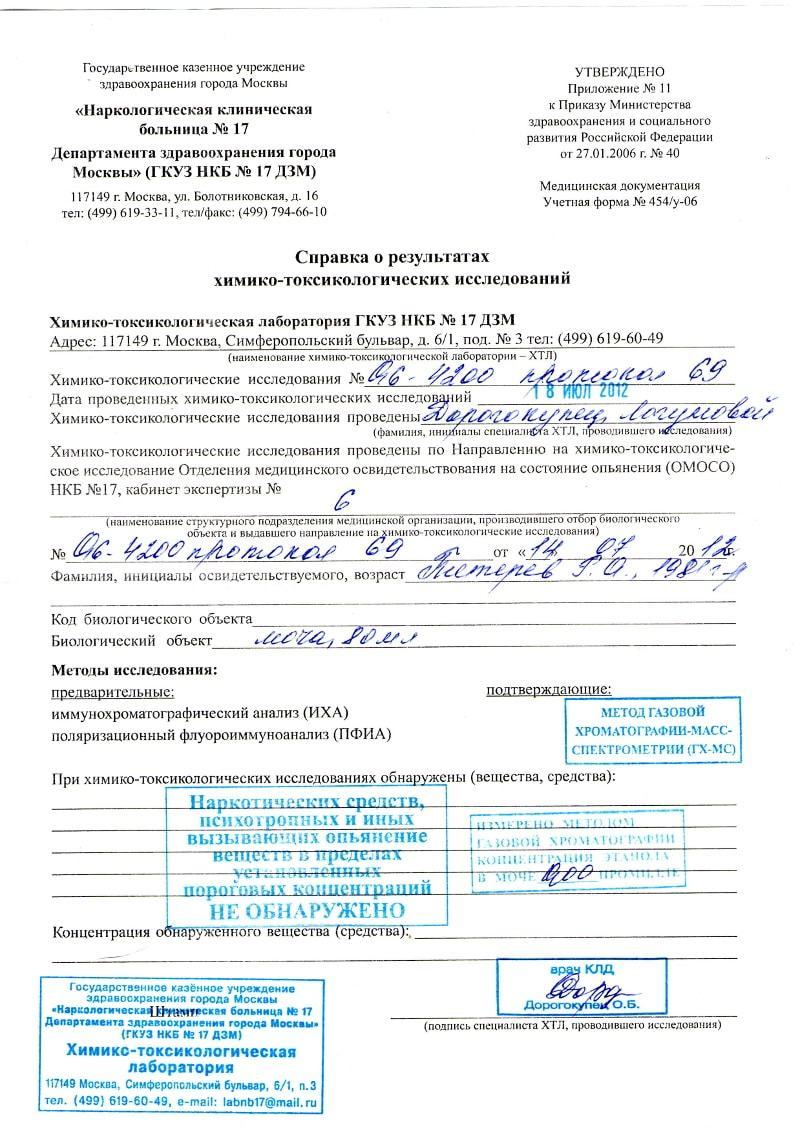 Государственное казенное учреждение
здравоохранения города Москвы
«Наркологическая клиническая
больница № 17
Департамента здравоохранения города
Москвы» (ГКУЗ НКБ № 17 ДЗМ)
117149 г. Москва, ул. Болотниковская, д. 16
тел: (499) 619-33-11, тел/факс: (499) 794-66-10
УТВЕРЖДЕНО
Приложение № 11
к Приказу Министерства
здравоохранения и социального
развития Российской Федерации
от 27.01.2006 г. № 40
Медицинская документация
Учетная форма № 454/у-06
Справка о результатах
химико-токсикологических исследований
Химико-токсикологическая лаборатория ГКУЗ НКБ № 17 ДЗМ
Адрес: 117149 г. Москва, Симферопольский бульвар, д. 6/1, под. № 3 тел: (499) 619-60-49
(наименование химико-токсикологической лаборатории – ХТЛ)
Химико-токсикологические исследования № 96-4200 протокол 69
Дата проведенных химико-токсикологических исследований 18 ИЮЛ 2012
Химико-токсикологические исследования проведены Дорогокупец, Логуновой
(фамилия, инициалы специалиста ХТЛ, проводившего исследования)
Химико-токсикологические исследования проведены по Направлению на химико-токсикологиче-
ское исследование Отделения медицинского освидетельствования на состояние опьянения (ОМОСО)
НКБ №17, кабинет экспертизы №
6
(наименование структурного подразделения медицинской организации, производившего отбор биологического
объекта и выдавшего направление на химико-токсикологические исследования)
№ 96-4200 протокол 69 от «14 07 2012г.
Фамилия, инициалы освидетельствуемого, возраст Г.А., 1981г.р
Код биологического объекта
Биологический объект моча, 80 мл
Методы исследования:
предварительные:
подтверждающие:
иммунохроматографический анализ (ИХА)
поляризационный флуороиммуноанализ (ПФИА)
МЕТОД ГАЗОВОЙ
ХРОМАТОГРАФИИ-МАСС-
СПЕКТРОМЕТРИИ (ГХ-МС)
При химико-токсикологических исследованиях обнаружены (вещества, средства):
Наркотических средств,
психотропных и иных
вызывающих опьянение
веществ в пределах
установленных
пороговых концентраций
НЕ ОБНАРУЖЕНО
ИЗМЕРЕНО МЕТОДОМ
ГАЗОВОЙ ХРОМАТОГРАФИИ
КОНЦЕНТРАЦИЯ ЭТАНОЛА
В МОЧЕ 0,00 ПРОМИЛЛЕ
Концентрация обнаруженного вещества (средства):
Государственное казённое учреждение
здравоохранения города Москвы
«Наркологическая клиническая больница № 17
Департамента здравоохранения города Москвы»
(ГКУЗ НКБ № 17 ДЗМ)
Химико-токсикологическая
лаборатория
117149 Москва, Симферопольский бульвар, 6/1, п.3
тел. (499) 619-60-49, e-mail: labnb17@mail.ru
Штамп
врач КЛД
Дорогокупец О.Б.
(подпись специалиста ХТЛ, проводившего исследования)